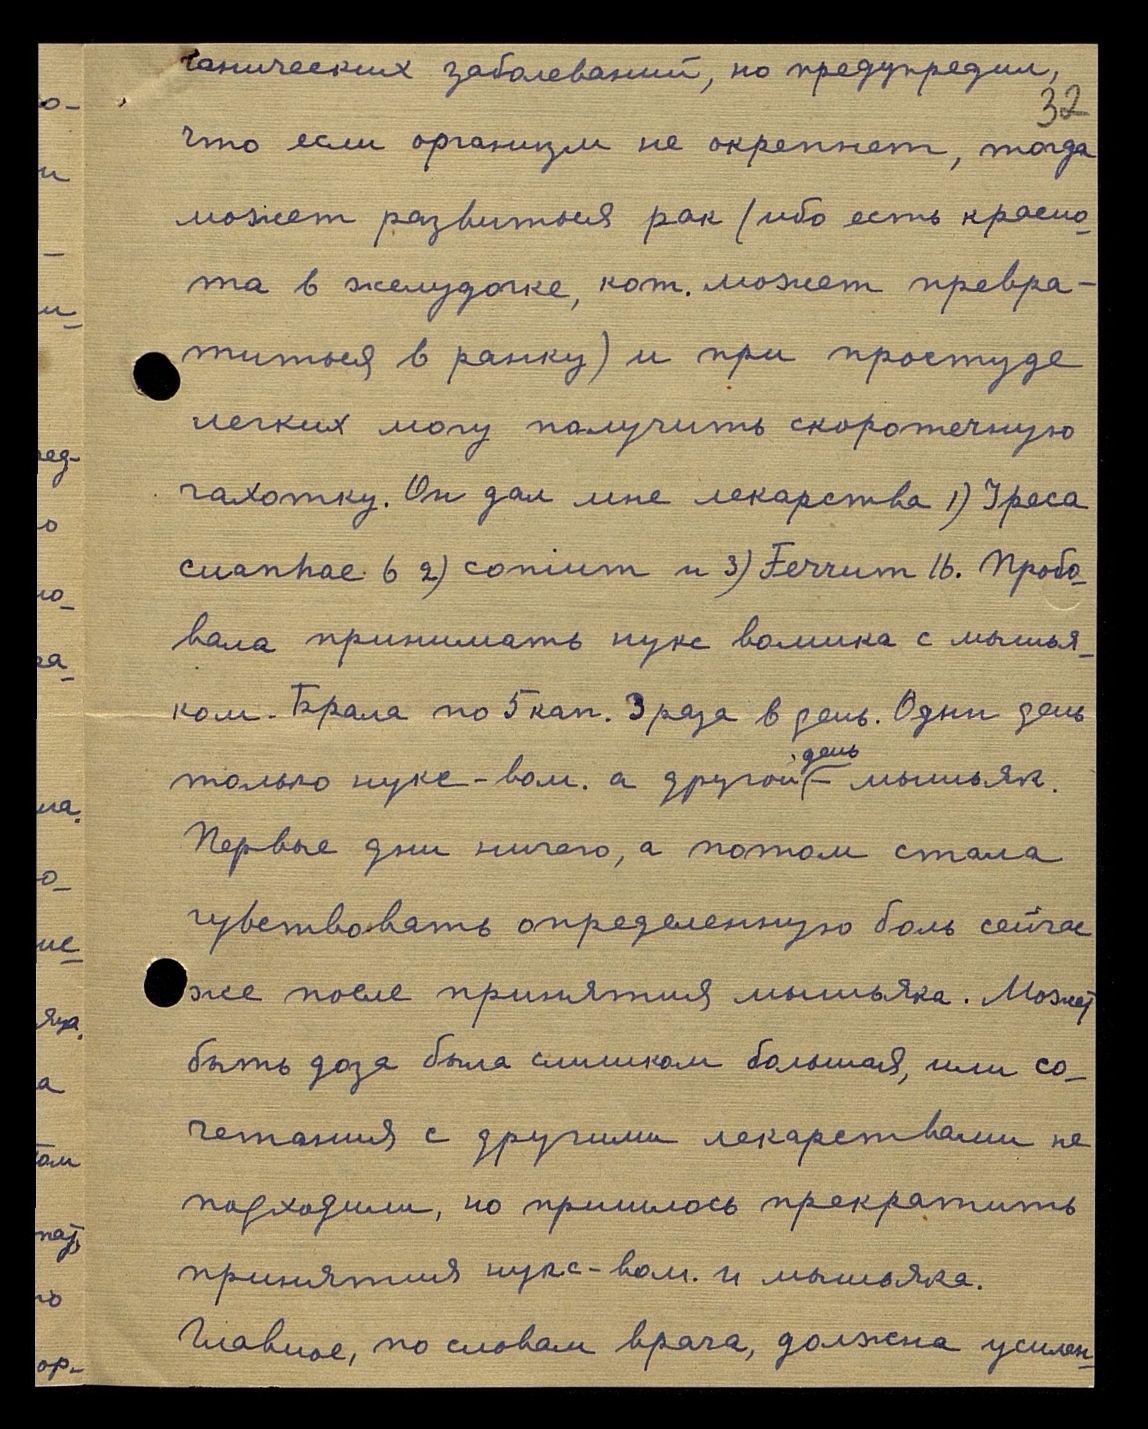 ганических заболеваний, но предупредил,
32
что если организм не окрепнет, тогда
может развиться рак (ибо есть красно-
та в желудочке, кот. может превра-
титься в ранку) и при простуде
легких могу получить скоротечную
чахотку. Он дал мне лекарства 1) Ipeca
cuanhae 6 2) conium и 3) Ferrum 16. Пробо-
вала принимать нукс вомика с мышья-
ком. Брала по 5 кап. 3 раза в день. Один день
только нукс-вом. а другой день – мышьяк.
Первые дни ничего, а потом стала
чувствовать определенную боль сейчас
же после принятия мышьяка. Может
быть доза была слишком большая, или со-
четания с другими лекарствами не
подходили, но пришлось прекратить
принятия нукс-вом. и мышьяка.
Главное, по словам врача, должна усилен-